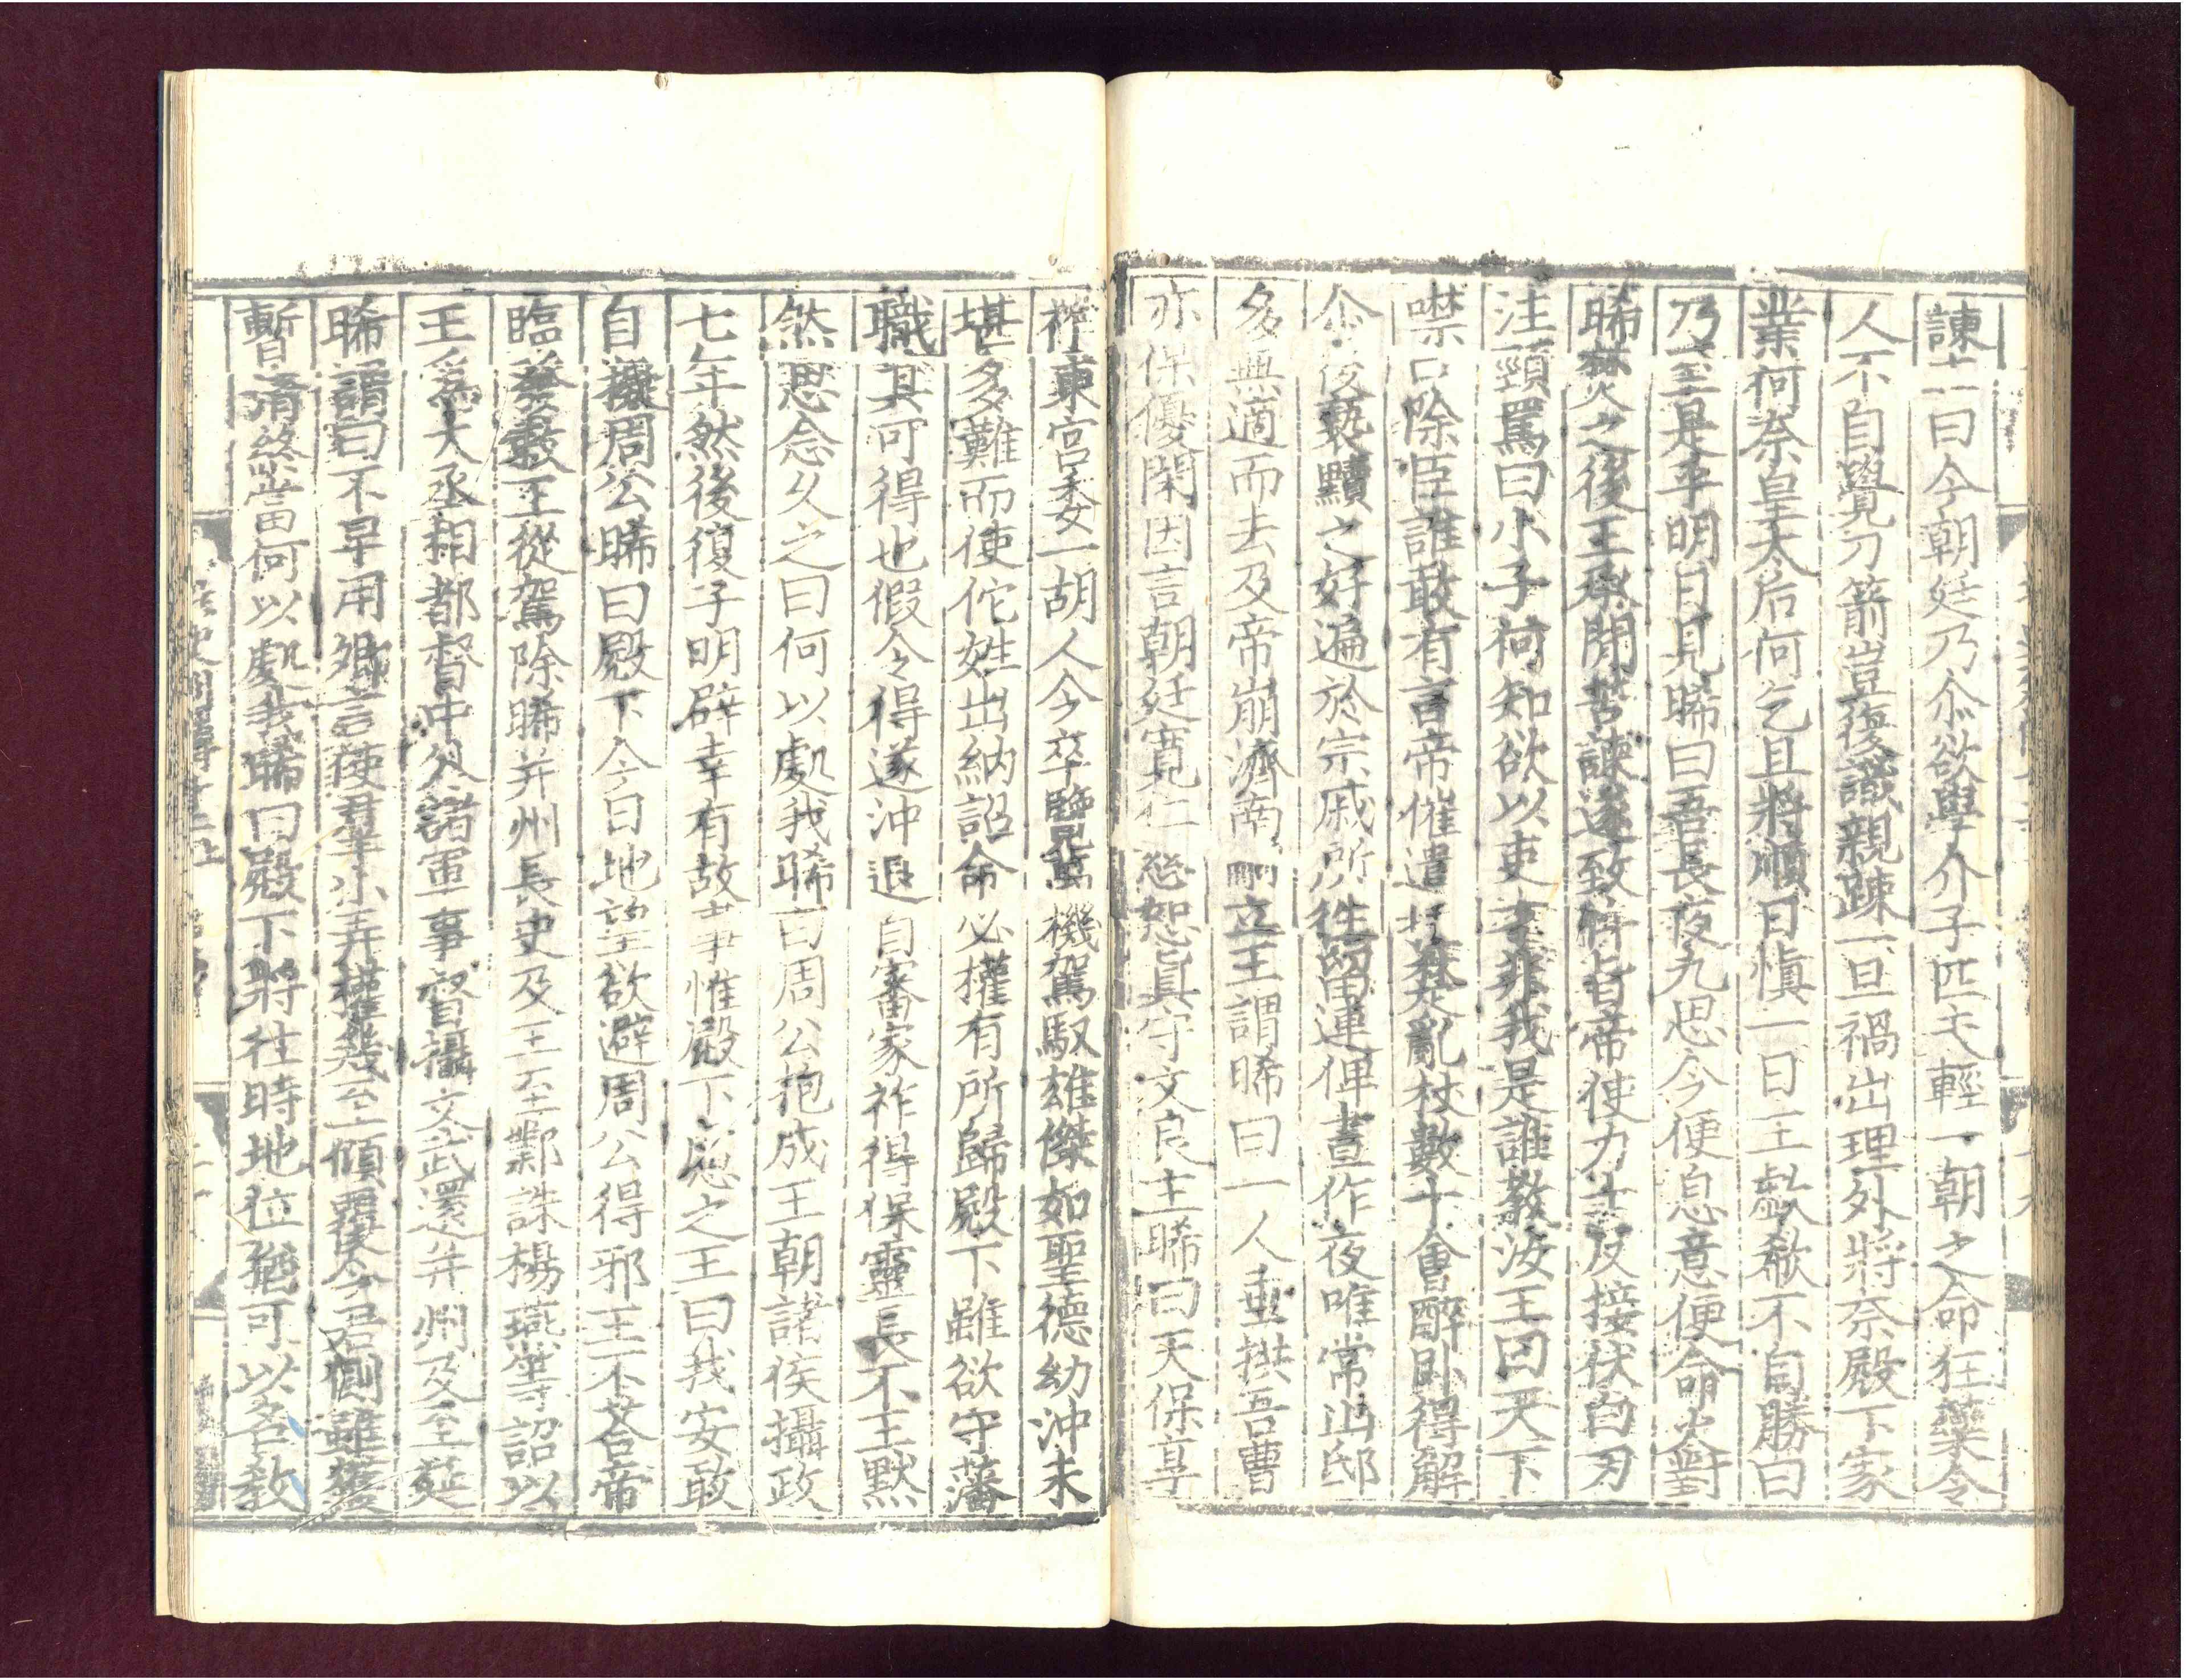 諫王曰今朝廷乃尒欲學介子匹夫輕一朝之命狂藥令
人不自覺刀箭豈復識親踈一旦禍出理外將奈殿下家
業何奈皇太后何乞且將順日慎一日王歔欷不自勝曰
乃至是乎明日見晞曰吾長夜九思今便息意便命火對
晞焚之後王承閒苦諫遂致忤旨帝使力士反接伏白刃
注頸罵曰小子何知欲以吏才非我是誰教汝王曰天下
噤口除臣誰敢有言帝催遣捶楚亂杖數十會醉臥得解
尒後褻黷之好遍於宗戚所徃留連俾晝作夜唯常山邸
多無適而去及帝崩濟南嗣立王謂晞曰一人垂拱吾曹
亦保優閑因言朝廷寬仁慈恕真守文良主晞曰天保享
祚東宮委一胡人今卒臨覽萬機駕馭雄傑如聖德幼沖未
堪多難而使佗姓出納詔命必權有所歸殿下雖欲守藩
職其可得也假令得遂沖退自審家祚得保靈長不王默
然思念久之曰何以處我晞曰周公抱成王朝諸侯攝政
七年然後復子明辟幸有故事惟殿下慮之王曰我安敢
自擬周公晞曰殿下今日地望欲避周公得邪王不荅帝
臨發敕王從駕除晞并州長史及王至鄴誅楊燕等詔以
王爲大丞相都督中外諸軍事督攝文武還并州及至延
晞謂曰不早用卿言使羣小弄權幾至傾覆今君側雖獲
暫清終當何以處我晞曰殿下將往時地位猶可以名教